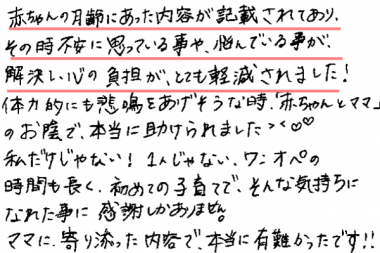 赤ちゃんの月齢にあった内容が記載されており、
その時不安に思っている事や、悩んでいる事が、
解決し、心の負担が、とても軽減されました！
体力的にも悲鳴をあげそうな時、「赤ちゃんとママ」
のお陰で、本当に助けられました><♡♡
私だけじゃない！1人じゃない、ワンオペの
時間も長く、初めての子育てで、そんな気持ちに
なれた事に感謝しかありません。
ママに、寄り添った内容で、本当に有難かったです!!